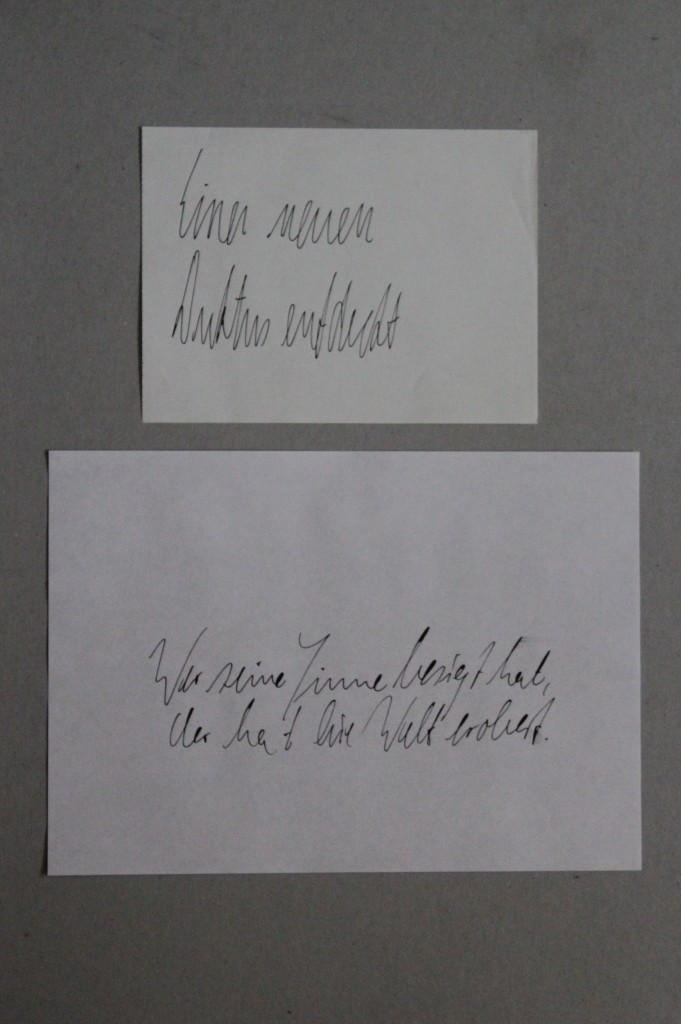 Einen neuen
Duktus entdeckt
Wer seine Sinne besiegt hat,
der hat die Welt erobert.